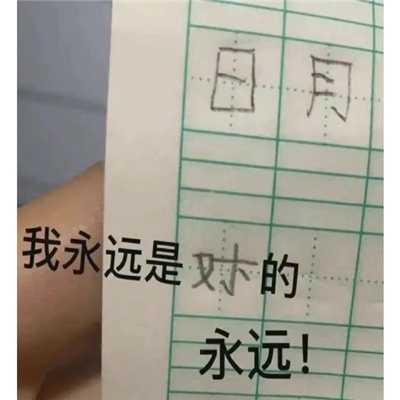 日月
我永远是对的
永远！